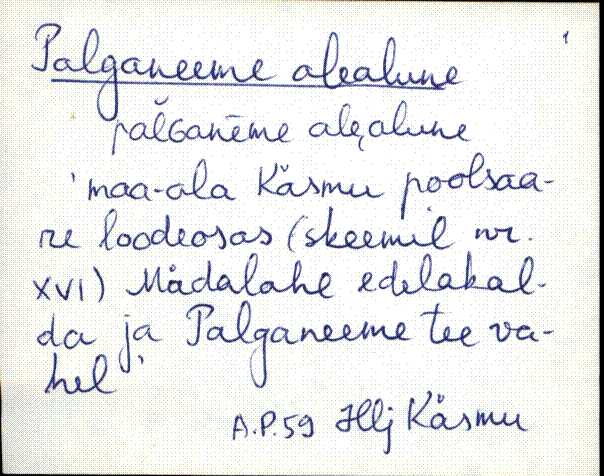 1
Palganeeme alealune
pălGanēme alęalune
'maa-ala Käsmu poolsaa-
re loodeosas (skeemil nr.
XVI) Mädalahe edelakal-
da ja Palganeeme tee va-
hel'
A.P.59 Hlj Käsmu